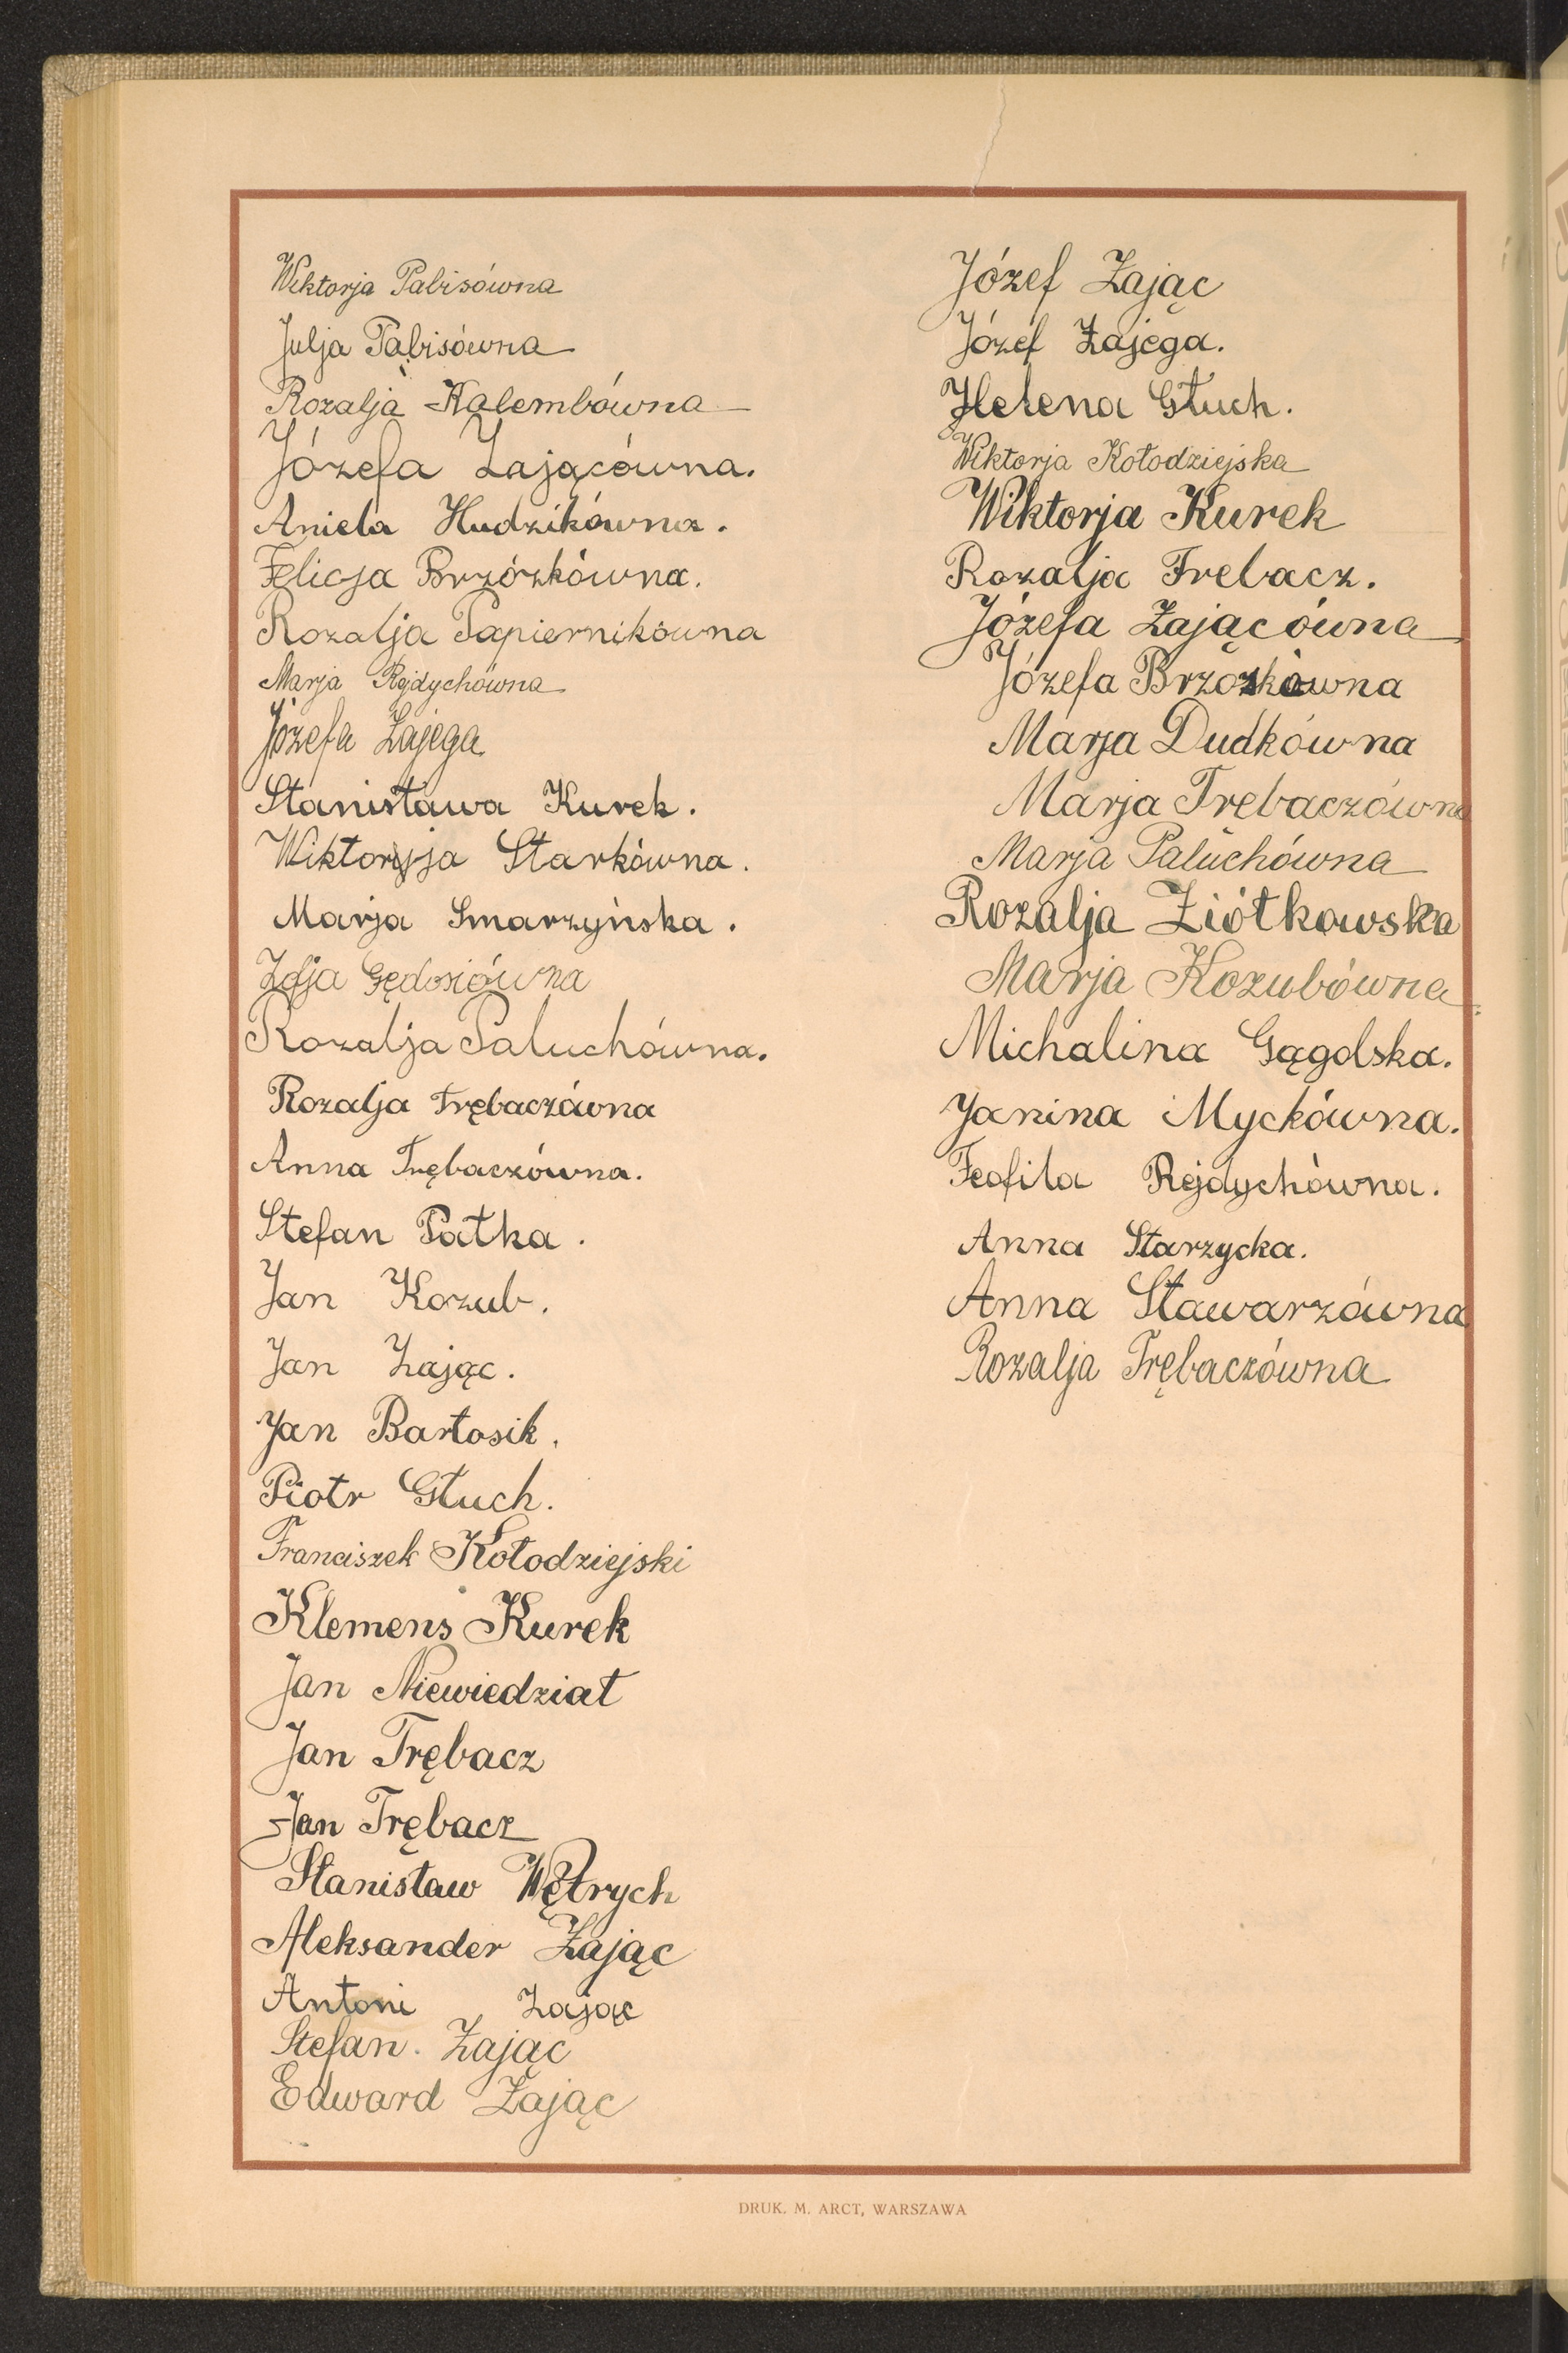 Wiktorja Pabisówna
Julja Pabisówna
Rozalja Kalembówna
Józefa Zającówna.
Aniela Hudzikówna.
Felicja Brzózkówna.
Rozalja Papiernikówna
Marja Rejdychówna
Józefa Zajega
Stanisława Kurek.
Wiktorja Starkówna.
Marja Smarzyńska.
Zofja Gędosiówna
Rozalja Paluchówna.
Rozalja Trębaczówna
Anna Trębaczówna.
Stefan Pałka.
Jan Kozub.
Jan Zając.
Jan Bartosik.
Piotr Głuch.
Franciszek Kołodziejski
Klemens Kurek
Jan Niewiedział
Jan Trębacz
Jan Trębacz
Stanisław Wętrych
Aleksander Zając
Antoni Zając
Stefan. Zając
Edward Zając
Józef Zając
Józef Zajega.
Helena Głuch.
Wiktorja Kołodziejska
Wiktorja Kurek
Rozalja Trebacz.
Józefa Zającówna
Józefa Brzozkówna
Marja Dudkówna
Marja Trebaczówna
Marja Paluchówna
Rozalja Ziółkowska
Marja Kozubówna
Michalina Gągolska.
Janina Myckówna.
Teofila Rejdychówna.
Anna Starzycka.
Anna Stawarzówna
Rozalja Trębaczówna
DRUK. M. ARCT, WARSZAWA